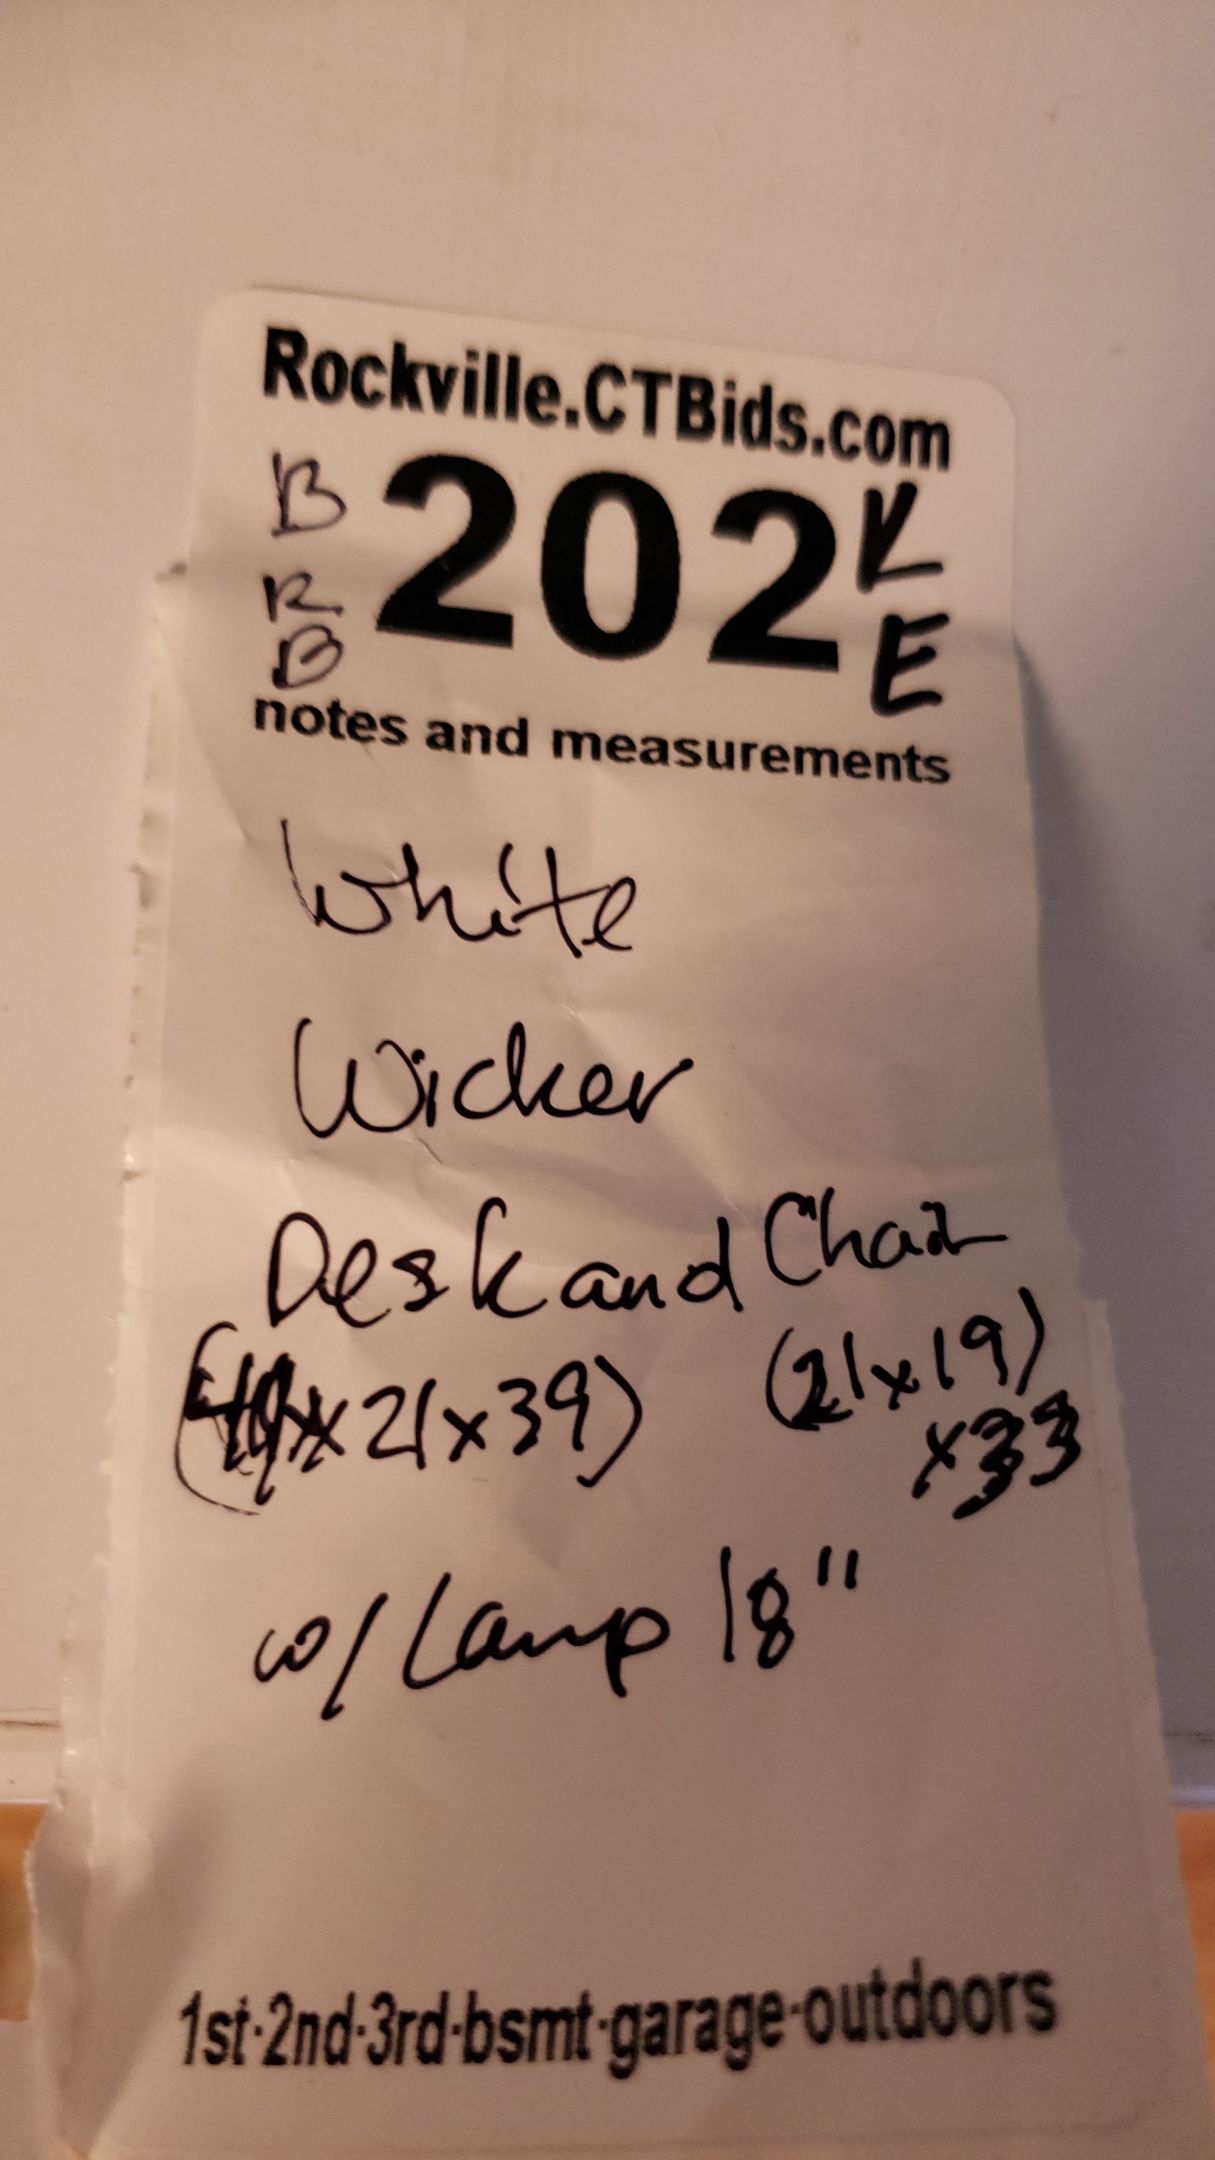 Rockville.CTBids.com
B 202 V
R E
B
notes and measurements
White
Wicker
Desk and Chair
x 21 x 39) (21 x 19)
x 33
w/ Lamp 18"
1st-2nd-3rd-bsmt-garage-outdoors